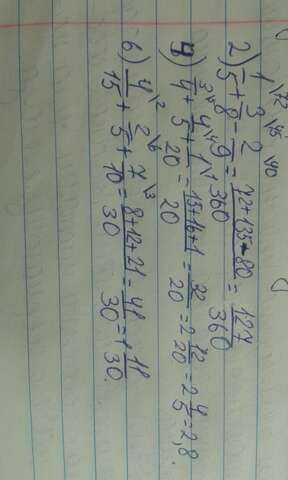 2) 1/5 \72 + 3/8 \45 - 2/9 \40 = (72+135-80)/360 = 127/360
4) 3/4 \5 + 4/5 \4 + 1/20 \1 = (15+16+1)/20 = 32/20 = 2 12/20 = 2 4/5 = 2,8.
6) 4/15 \2 + 2/5 \6 + 7/10 \3 = (8+12+21)/30 = 41/30 = 1 11/30.